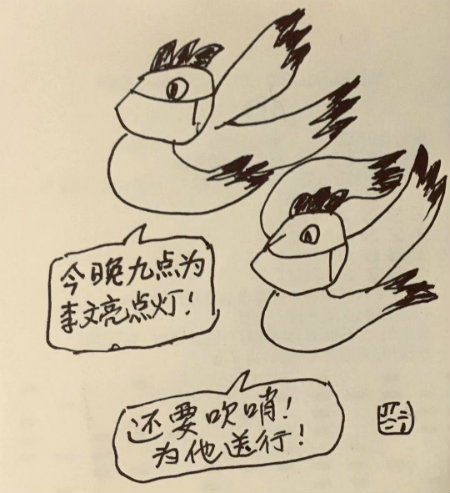 今晚九点为
李文亮点灯!
还要吹哨!
为他送行!